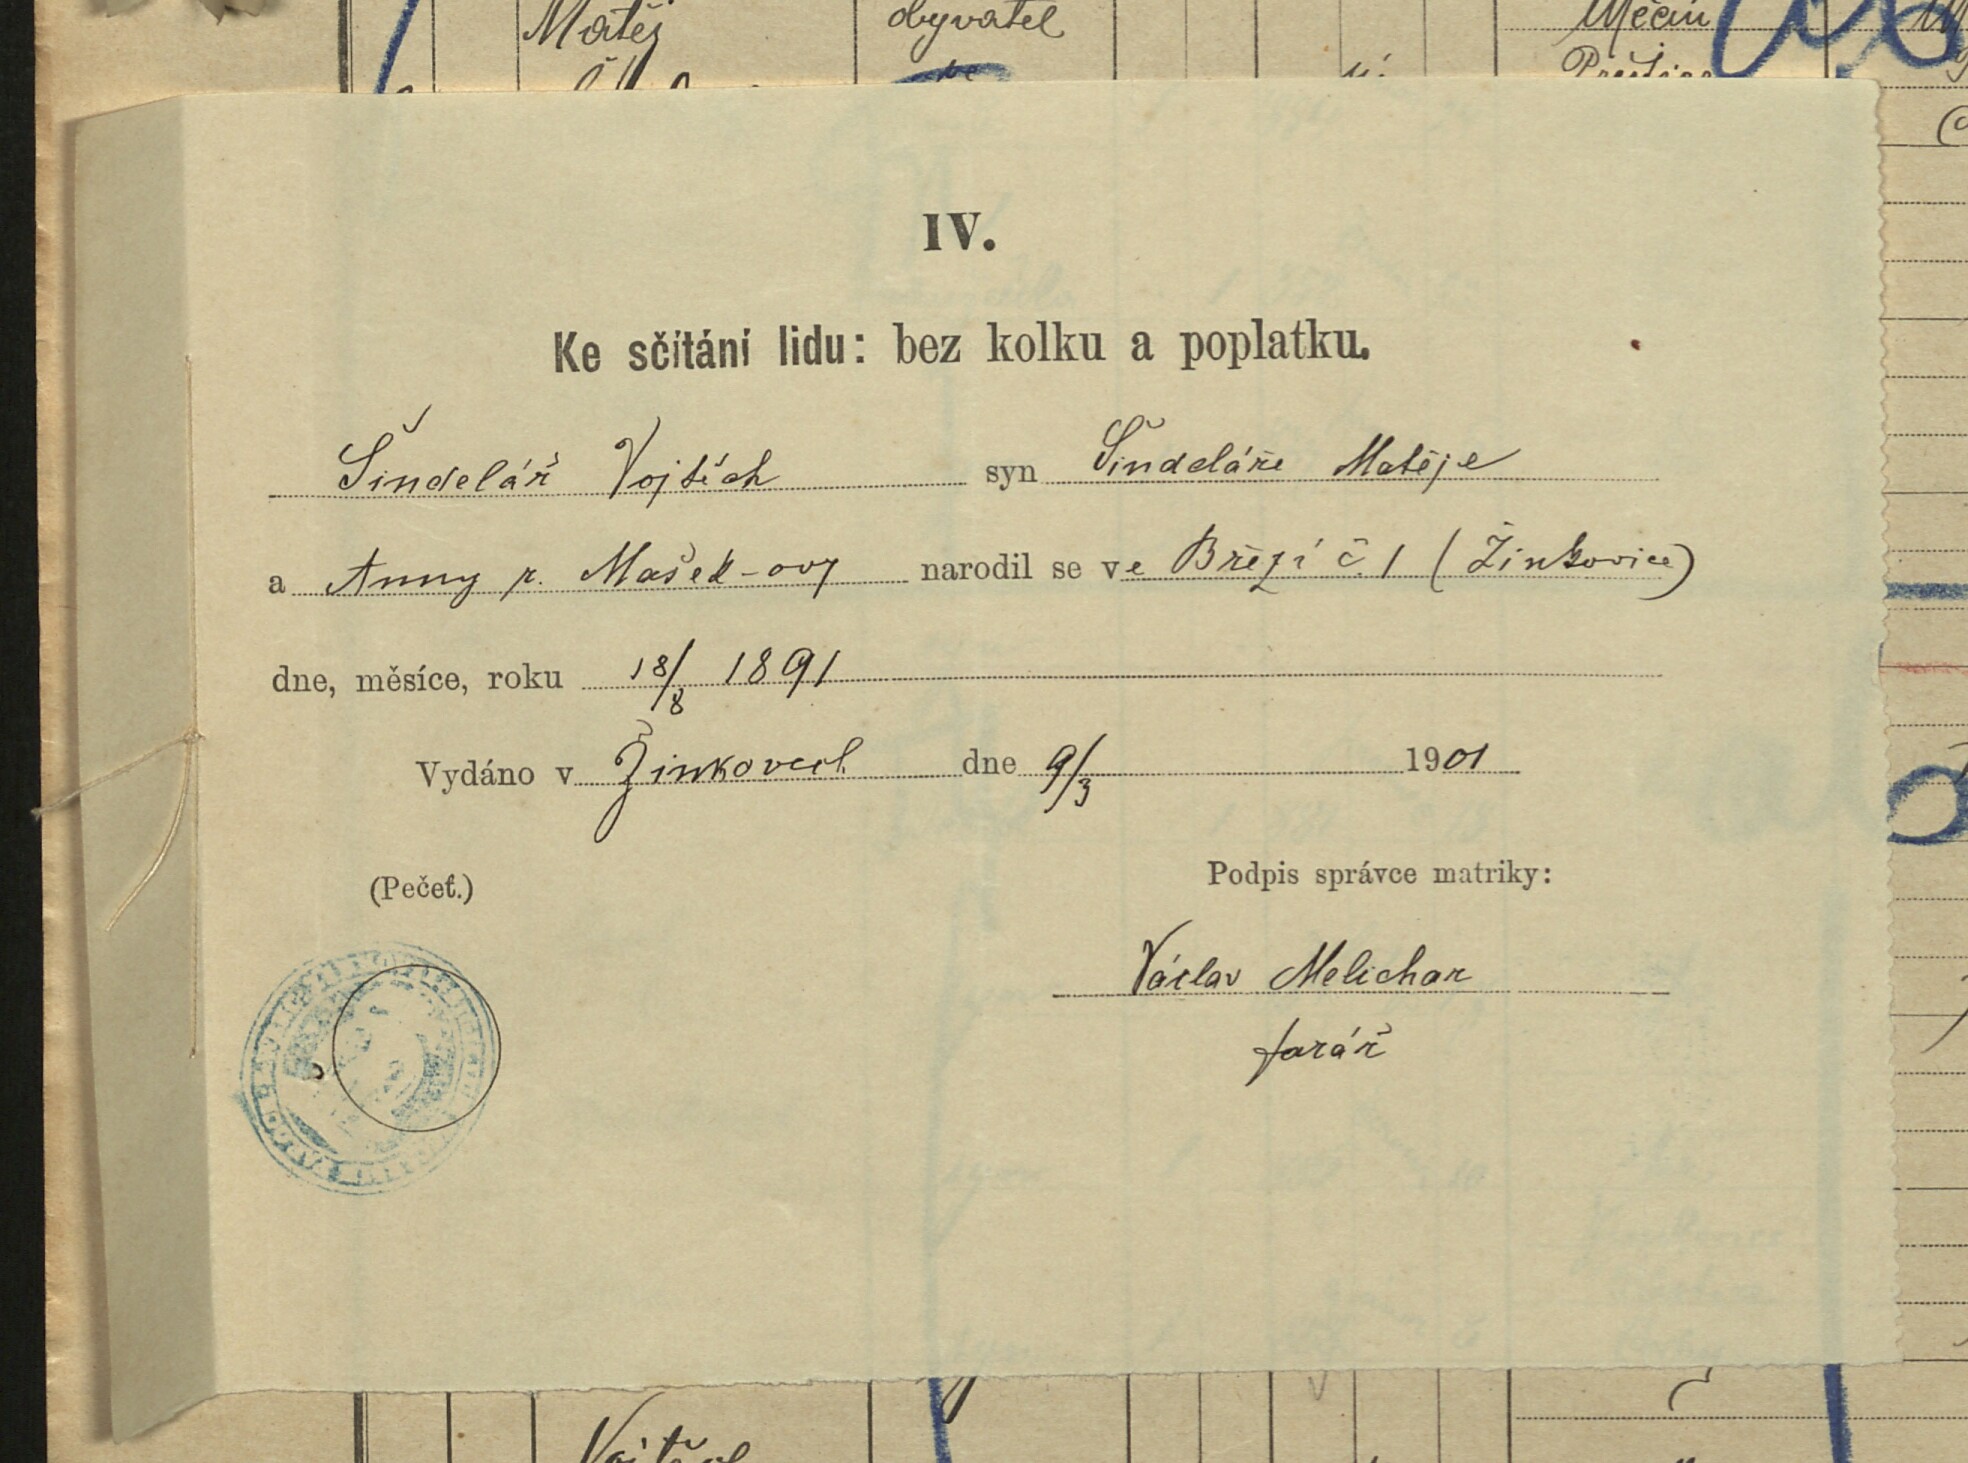 Matěj obyvatel Měčín
IV.
Ke sčítání lidu: bez kolku a poplatku.
Šindelář Vojtěch syn Šindeláře Matěje
a Anny r. Mašek-ovy narodil se ve Březí č. 1 (Žinkovice)
dne, měsíce, roku 18/8 1891
Vydáno v Žinkovech dne 9/3 1901
(Pečeť.)
Podpis správce matriky:
Václav Melichar
farář
Vojtěch